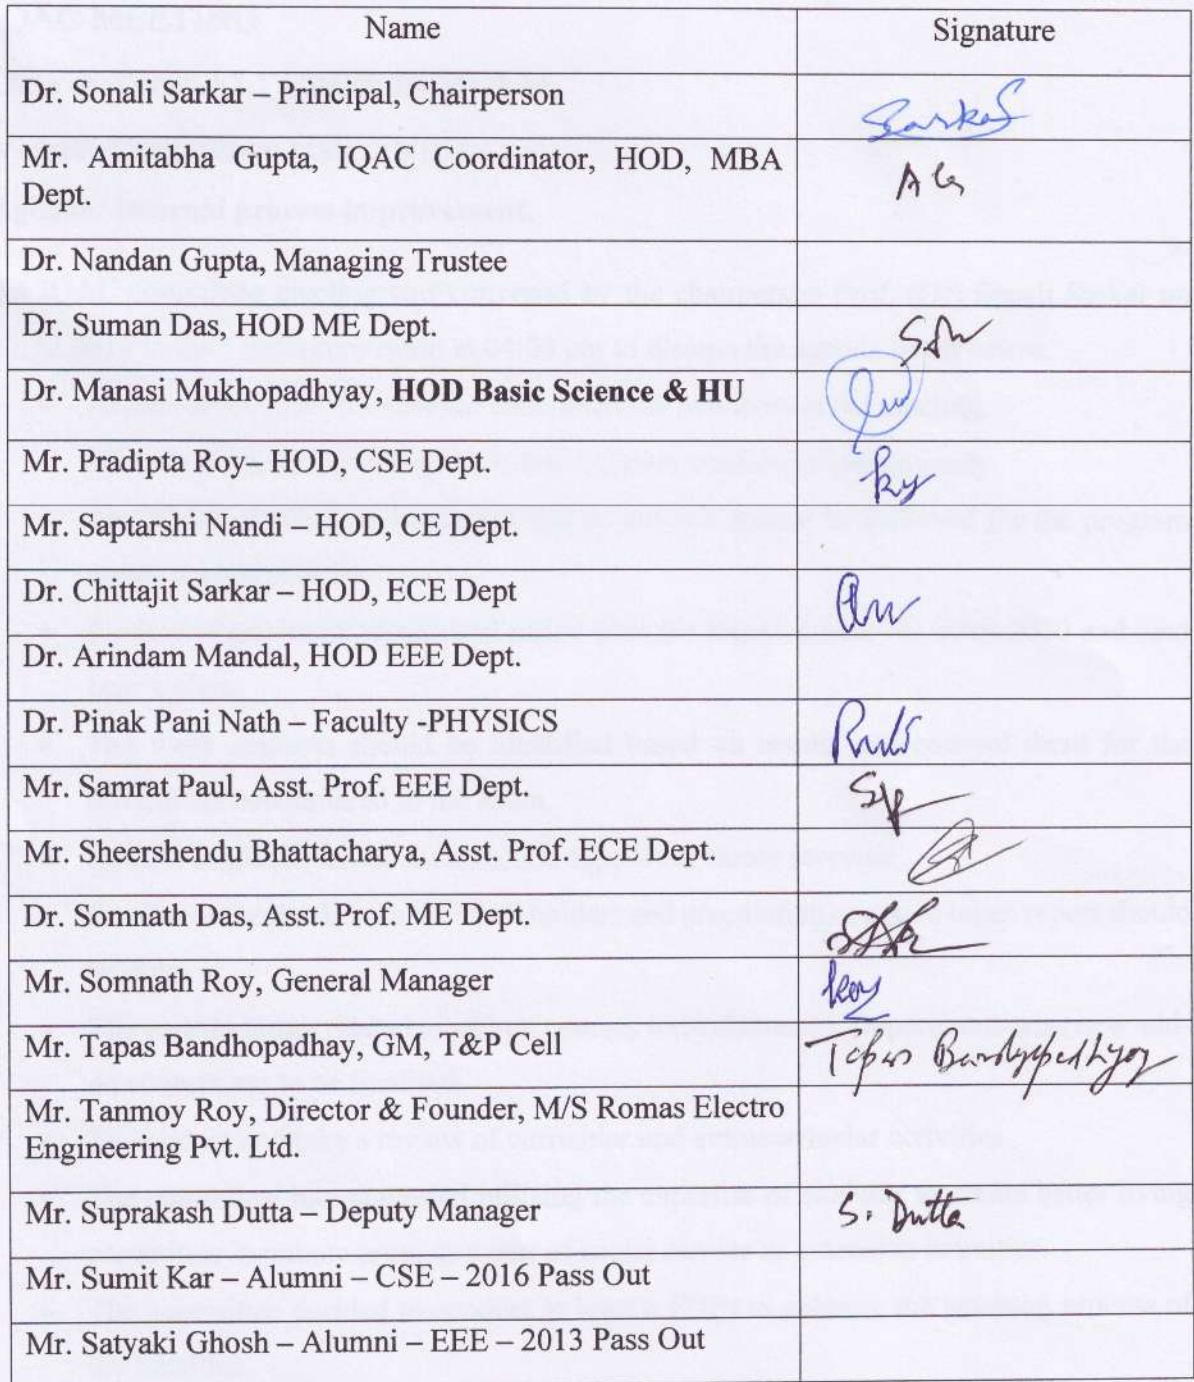 Name Signature
Dr. Sonali Sarkar – Principal, Chairperson Sarkar
Mr. Amitabha Gupta, IQAC Coordinator, HOD, MBA
Dept. AG
Dr. Nandan Gupta, Managing Trustee
Dr. Suman Das, HOD ME Dept.
Dr. Manasi Mukhopadhyay, HOD Basic Science & HU
Mr. Pradipta Roy– HOD, CSE Dept.
Mr. Saptarshi Nandi – HOD, CE Dept.
Dr. Chittajit Sarkar – HOD, ECE Dept
Dr. Arindam Mandal, HOD EEE Dept.
Dr. Pinak Pani Nath – Faculty -PHYSICS
Mr. Samrat Paul, Asst. Prof. EEE Dept.
Mr. Sheershendu Bhattacharya, Asst. Prof. ECE Dept.
Dr. Somnath Das, Asst. Prof. ME Dept.
Mr. Somnath Roy, General Manager Roy
Mr. Tapas Bandhopadhay, GM, T&P Cell Tapas Bandyopadhyay
Mr. Tanmoy Roy, Director & Founder, M/S Romas Electro
Engineering Pvt. Ltd.
Mr. Suprakash Dutta – Deputy Manager S. Dutta
Mr. Sumit Kar – Alumni – CSE – 2016 Pass Out
Mr. Satyaki Ghosh – Alumni – EEE – 2013 Pass Out